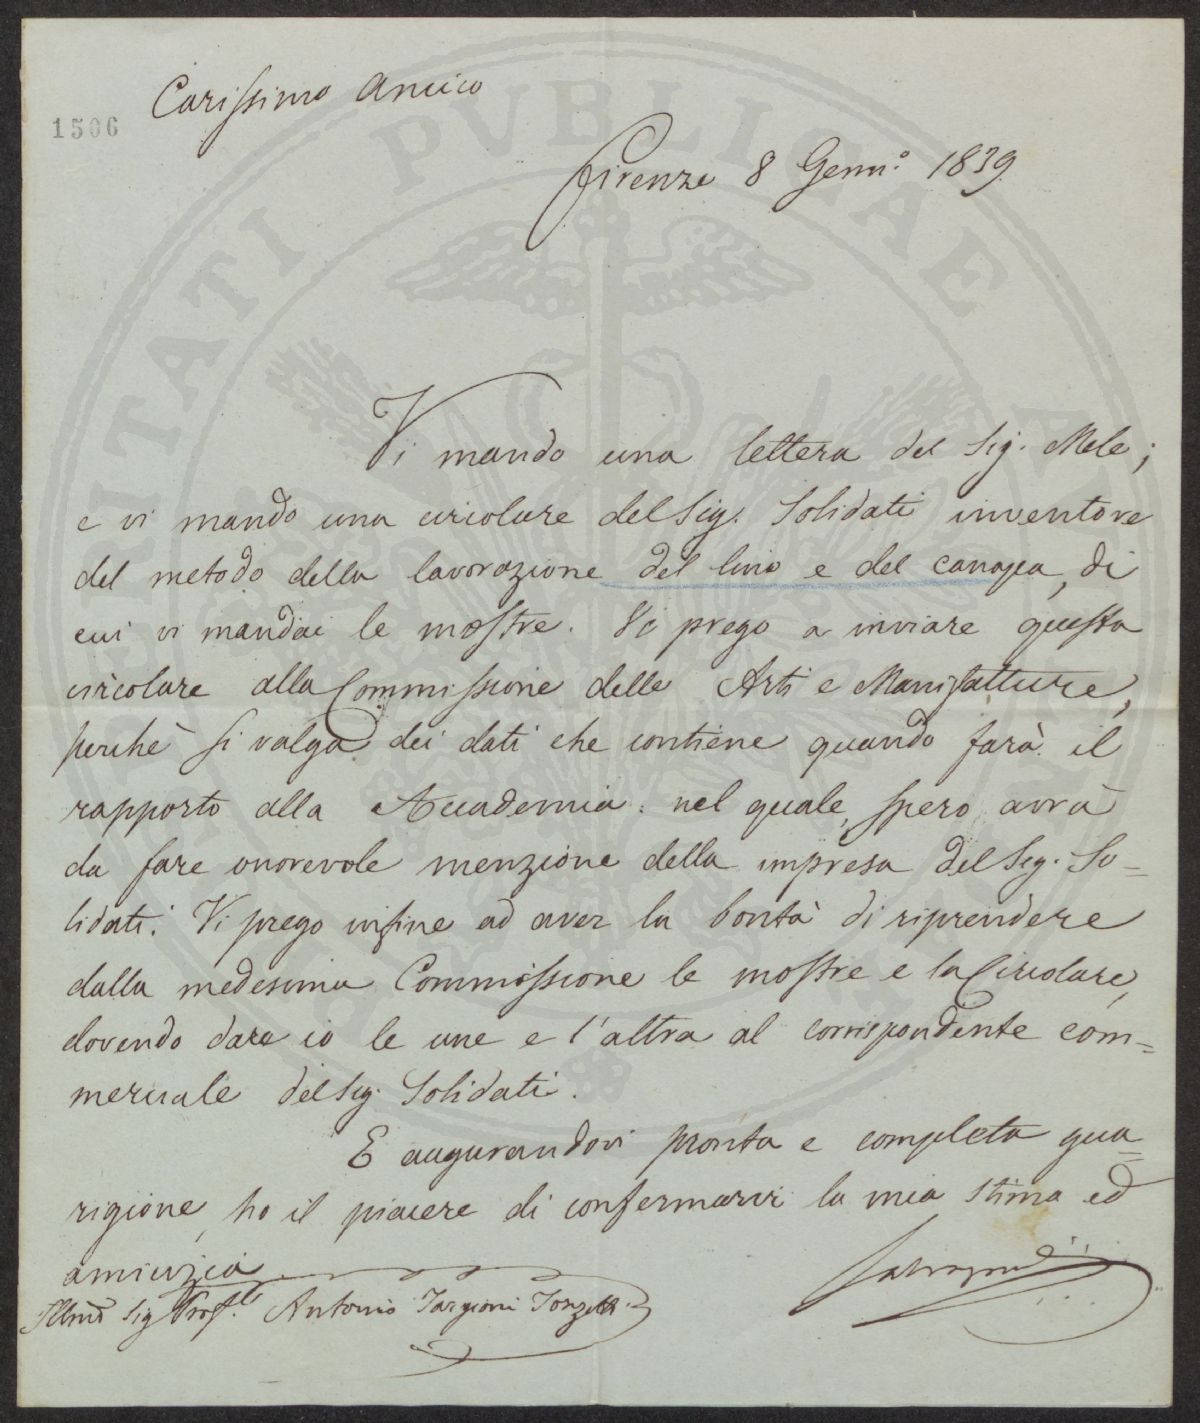 Carissimo Amico
1506
Firenze 8 Genn.º 1839
Vi mando una lettera del Sig. Mele;
e vi mando una circolare del Sig. Solidati inventore
del metodo della lavorazione del lino e del canapa, di
cui vi mandai le mostre. Vi prego a inviare questa
circolare alla Commissione delle Arti e Manifatture,
perchè si valga dei dati che contiene quando farà il
rapporto alla Accademia: nel quale, spero, avrà
da fare onorevole menzione della impresa del Sig. So=
lidati. Vi prego infine ad aver la bontà di riprendere
dalla medesima Commissione le mostre e la Circolare,
dovendo dare io le une e l'altra al corrispondente com=
merciale del Sig. Solidati.
E augurandovi pronta e completa gua=
rigione, ho il piacere di confermarvi la mia stima ed
amicizia
Illmo Sig Prof.e Antonio Targioni Tozzetti
PUBLICAE